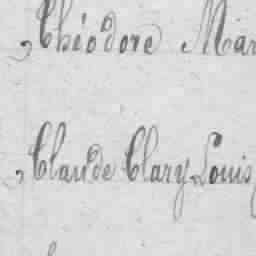 , Théodore Mar
, Claude Clary Louis